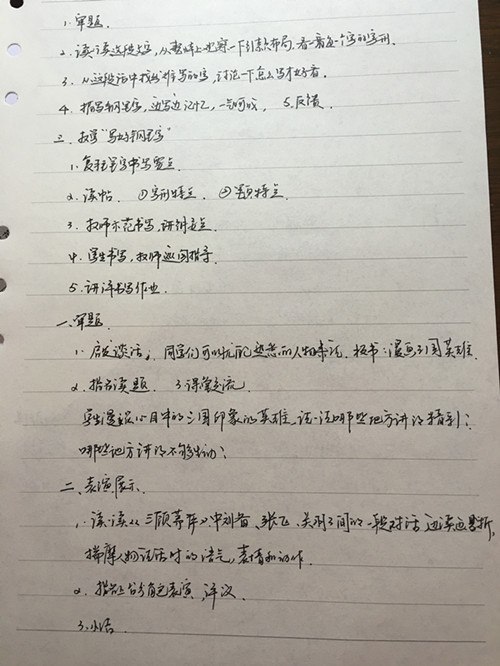 1. 审题.
2. 读一读这段文字,从整体上观察一下引款布局,看一看每个字的字形.
3. 从这段话中找出难写的字,讨论一下怎么写才好看.
4. 描写钢笔字,边写边记忆,一气呵成. 5. 反馈
三. 教学“写好钢笔字”
1. 复习写字书写要点
2. 读帖. ①字形特点. ②字的特点.
3. 教师示范书写,讲解要点
4. 学生书写,教师巡回指导.
5. 讲评书写作业.
一. 审题.
1. 启发谈话。同学们可以就自己熟悉的人物来说. 板书:漫画三国英雄.
2. 指名读题. 3. 课堂交流.
学生漫说心目中的三国印象的英雄,说一说哪些地方讲得精彩?
哪些地方讲得不够生动?
二. 表演展示.
1. 读一读《三顾茅庐》中刘备、张飞、关羽之间的一段对话,边读边思考,
揣摩人物说话时的语气,表情和动作.
2. 指名上台分角色表演,评议.
3. 小结.